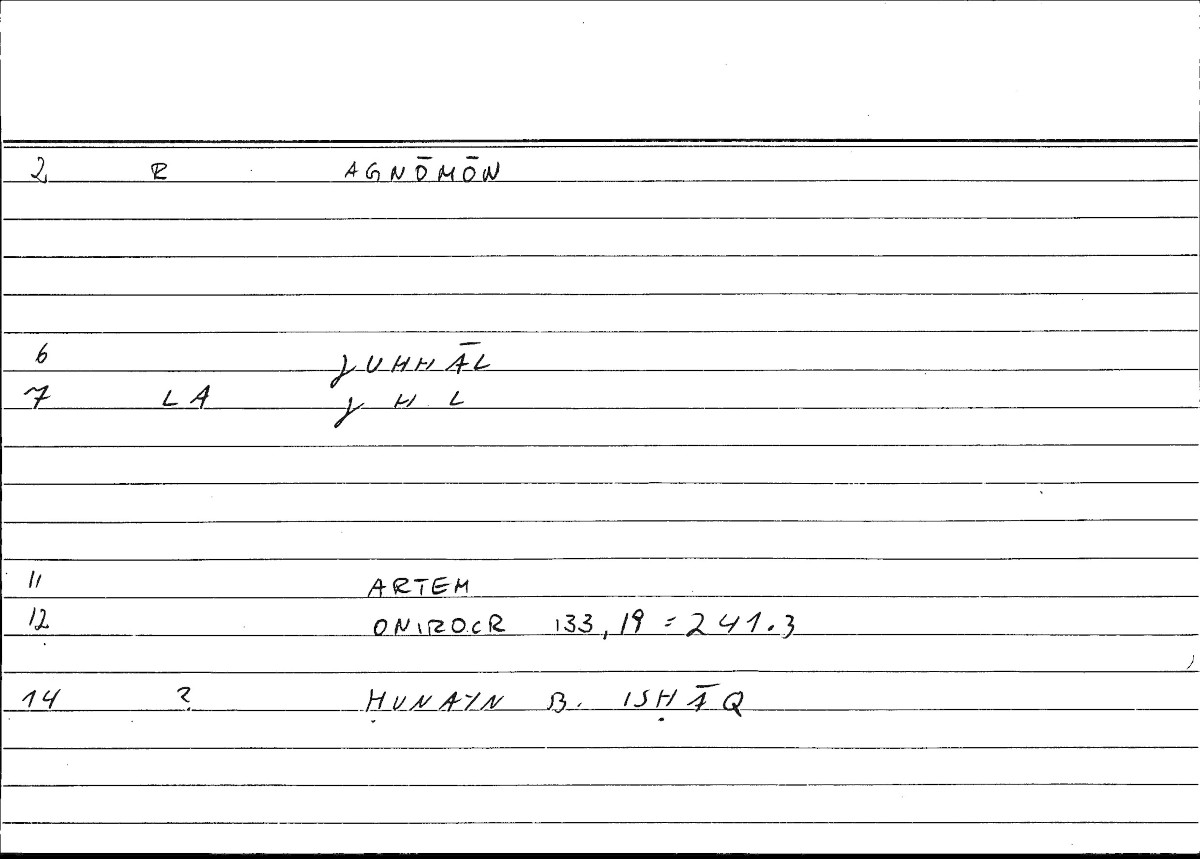 2 R AGNŌMŌN
6 ǦUHHĀL
7 LA Ǧ H L
11 ARTEM
12 ONIROCR 133,19 = 241.3
14 ? ḤUNAYN B. ISḤĀQ